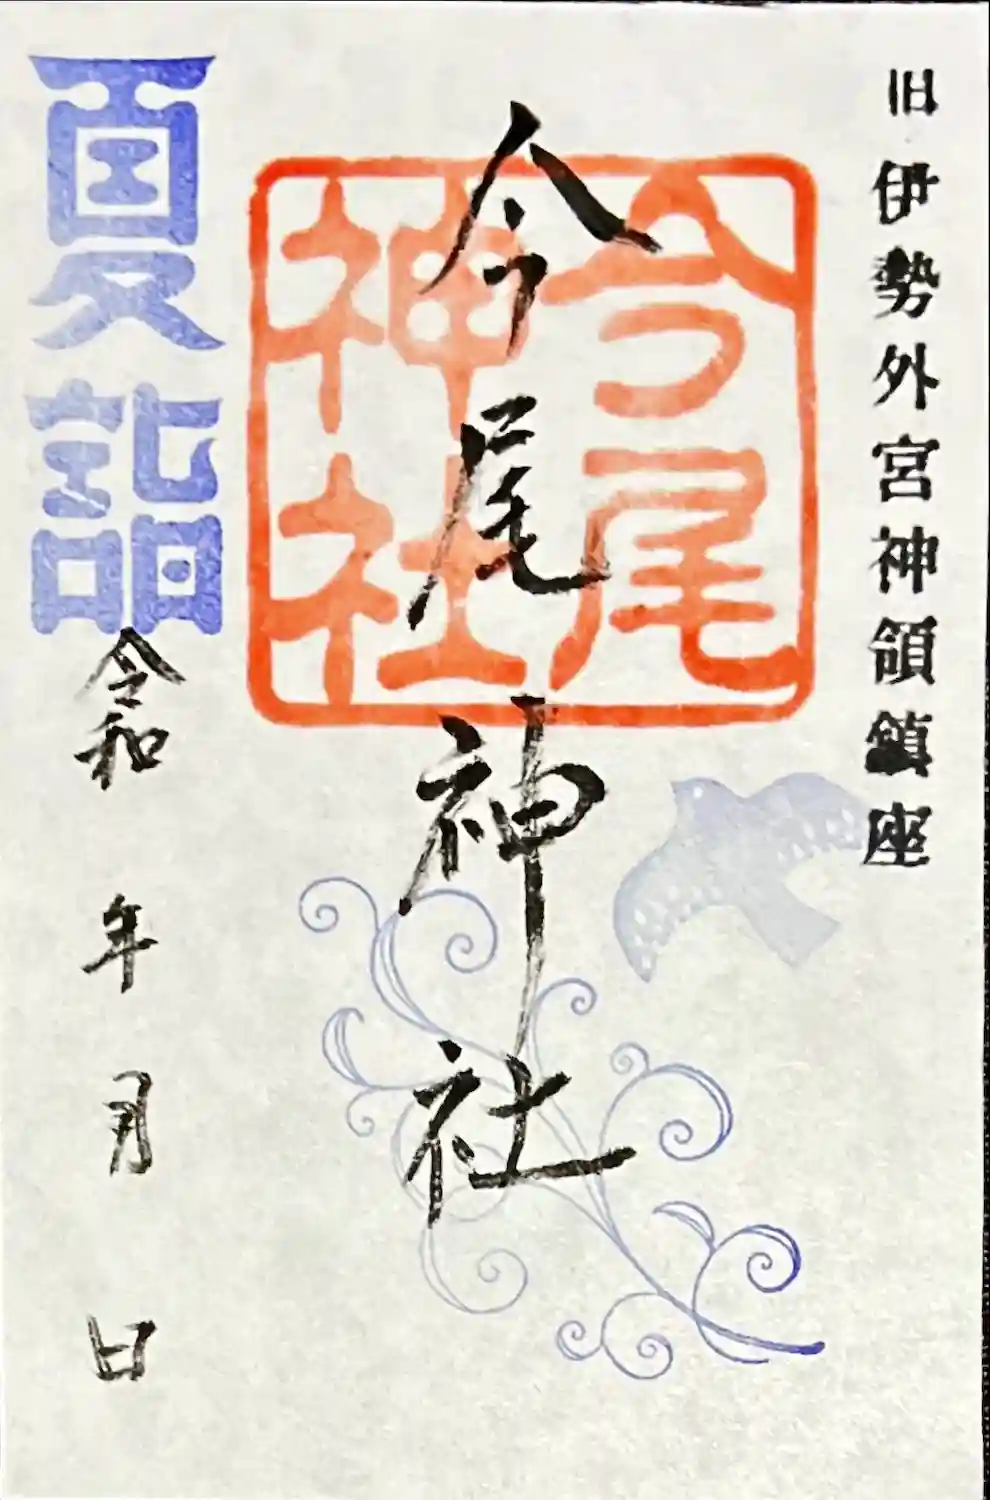 旧伊勢外宮神領鎮座
今尾神社
今尾
神社
夏詣
令和 年 月 日